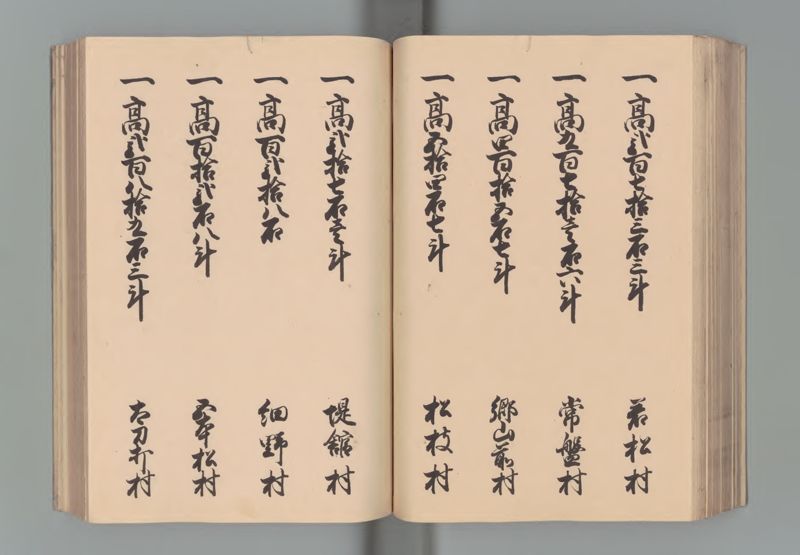 一高弐百七拾三石三斗 若松村
一高九百七拾壱石六斗 常盤村
一高四百拾五石七斗 郷山前村
一高五拾四石七斗 松枝村
一高弐拾七石壱斗 堤舘村
一高百弐拾八石 細野村
一高百拾弐石八斗 五本松村
一高弐百八拾九石三斗 太刀打村